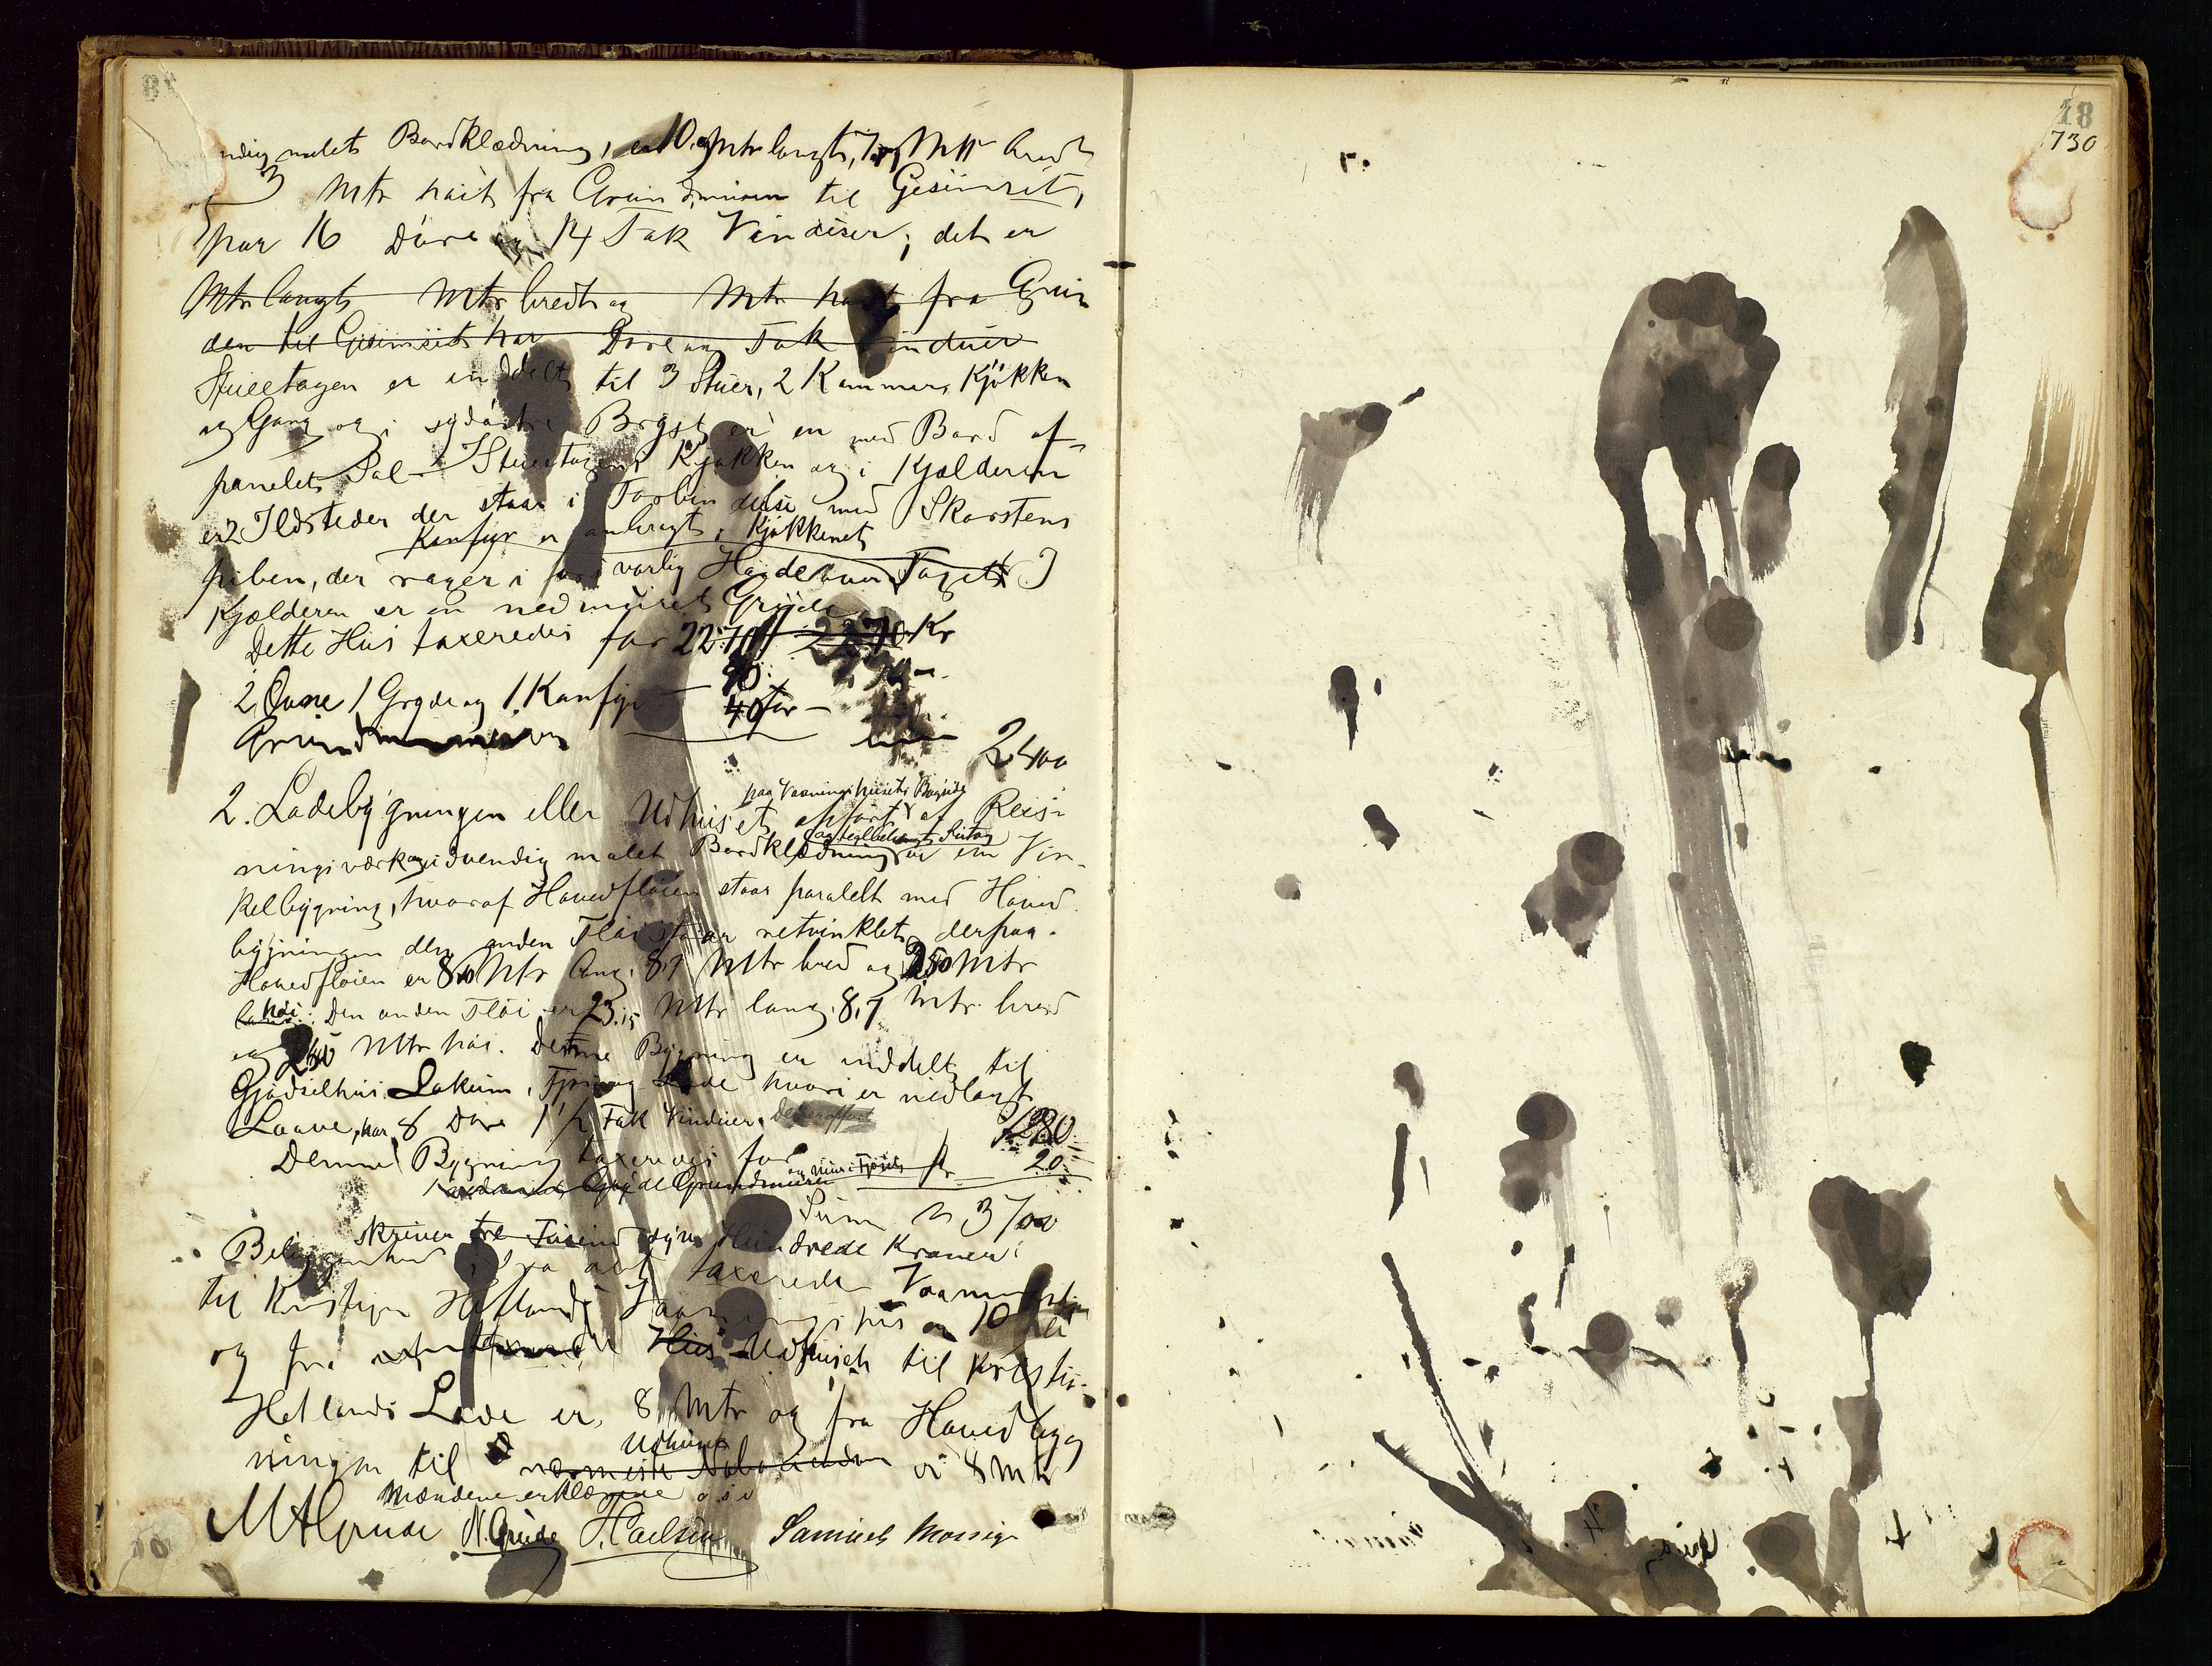 18
730
ndig malet Bordklædning, er 10 Mtr langt, Mtr bredt
3 Mtr høit fra Grundmuren til Gesimset,
har 16 Døre og 14 Fak Vinduer; det er
Mtr langt Mtr bredt og Mtr høit fra Grun
den til Gesimset har Døre og Fak Vinduer
Stueetagen er inddelt til 3 Stuer, 2 Kammer, Kjøkken
og Gang og i sydøstre Bryst er en med Bord af-
panelet Sal Stueetagens Kjøkken og i Kjælderen
er 2 Ildsteder der staar i Forbindelse med Skorstens
Komfyr er anbragt i Kjøkkenet
piben, der rager i forsvarlig Høide over Taget I
Kjælderen er en nedmuret Gryde
Dette Hus taxeredes for 2270 2270 Kr
2 Ovne 1 Gryde og 1 Komfyr 90
Grundmuren 40 for
2400
paa Vaaningshusets Bagside
2. Ladebygningen eller Udhuset opført af Reis-
og teglhængt Sutag
ningsværk og udvendig malet Bordklædning er en Vin-
kelbygning, hvoraf Hovedfløien staar paralelt med Hoved
bygningen den anden Fløi staar retvinklet derpaa.
Hovedfløien er Mtr lang, 8,7 Mtr bred og 2,50 Mtr
høi. Den anden Fløi er 23,15 Mtr lang, 8,7 Mtr. bred
og 2,50 Mtr høi. Denne Bygning er inddelt til
Gjødselhus, Lokum, Fjøs og Lade hvori er nedlagt
Laave, har 8 Døre 1 1/2 Fak Vinduer. Det er opført
Denne Bygning taxeredes for 1280
og Mur i Fjøset
Gryde Grundmuren 20
Sum 3700
skriver tre Tusind syv Hundrede Kroner
Beliggenhed fra det taxerede Vaaningshus
til Kristian Hetlands Vaaningshus er 10
og fra Hus Udhuset til Kristian
Hetlands Lade er 8 Mtr og fra Hovedbyg
Udhuset
ningen til nærmeste er 8 Mtr
Mændene erklærede o s v
M A Grude N. Grude Samuel Mossige